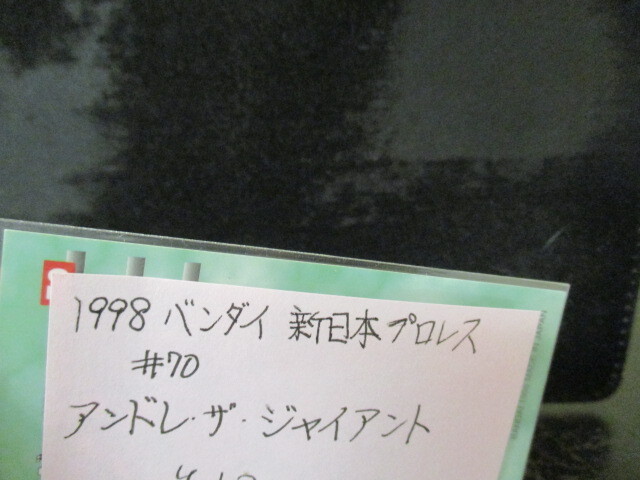 1998 バンダイ 新日本プロレス
#70
アンドレ・ザ・ジャイアント